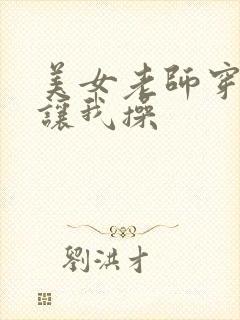 美女老師穿
讓我操
劉洪才